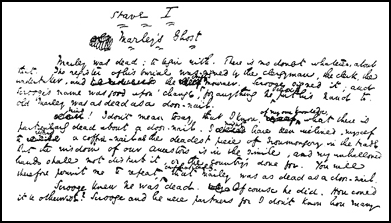 Stave I
Marley's Ghost
Marley was dead: to begin with. There is no doubt whatever, about
that. The register of his burial was signed by the clergyman, the clerk, the
undertaker, and the chief mourner. Scrooge signed it; and
Scrooge's name was good upon 'Change, for anything he put his hand to.
old Marley was as dead as a door-nail.
Mind! I don't mean to say, that I know, of my own knowledge, what there is
particularly dead about a door-nail. I might have been inclined, myself
to a coffin-nail as the deadest piece of ironmongery in the trade
but the wisdom of our ancestors is in the simile; and my unhallowed
hands shall not disturb it, or the Country's done for. You will
therefore permit me to repeat that Marley was as dead as a door-nail
Scrooge knew he was dead. Of course he did. How could
it be otherwise? Scrooge and he were partners for I don't know how many